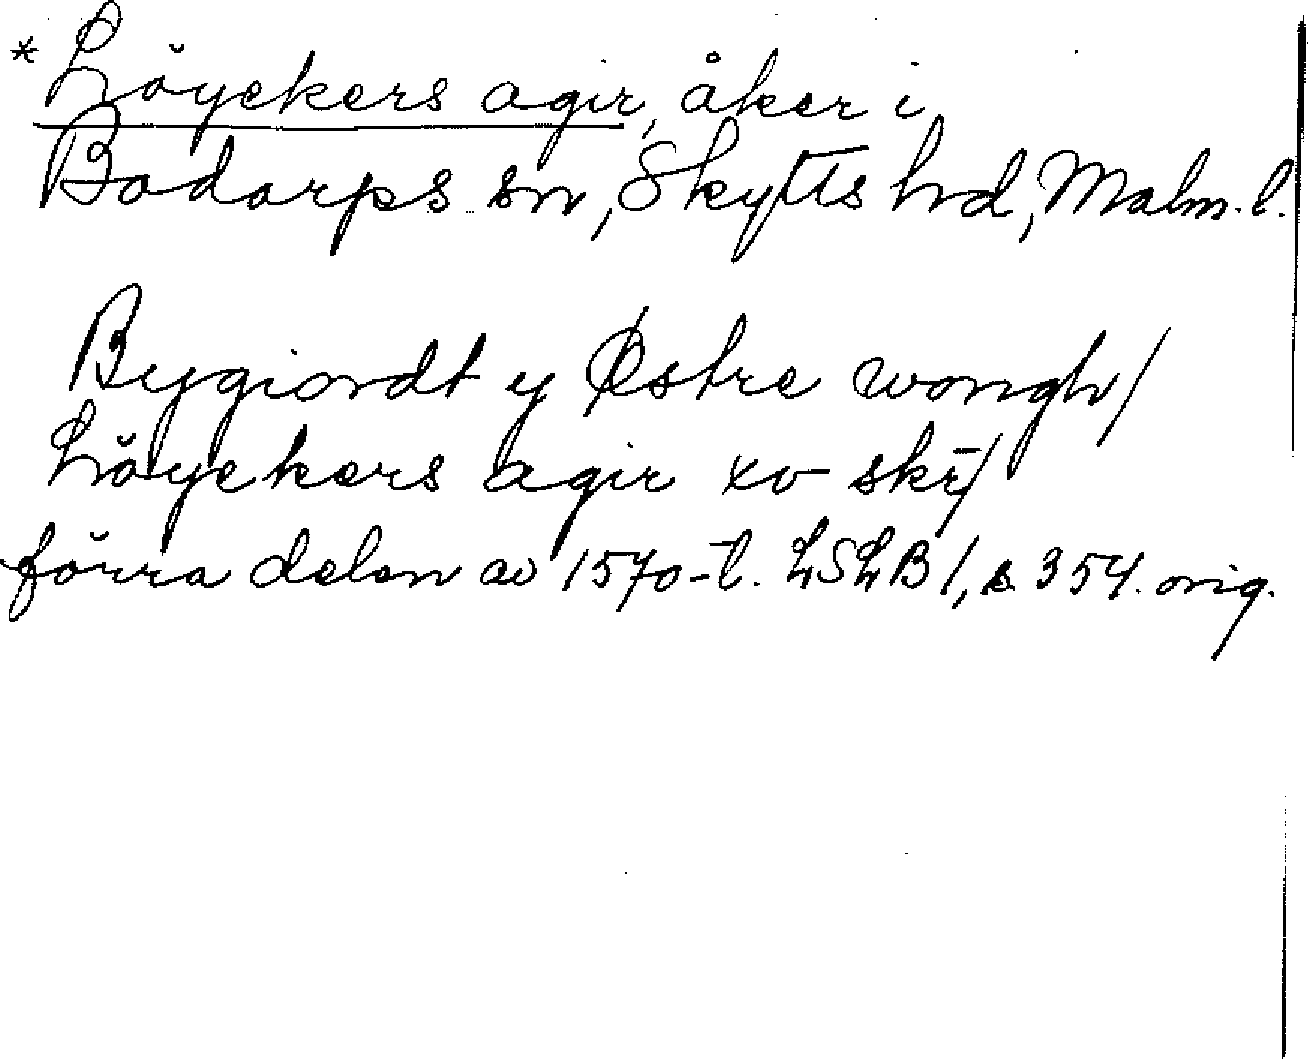 *Löyekers agir, åker i
Bodarps sn, Skytts hd, Malm. l.
Bygiordt y Østre wongh/
Löyekers agir xv skr̄/
förra delen av 1570-t. LSLB 1, s. 354. orig.